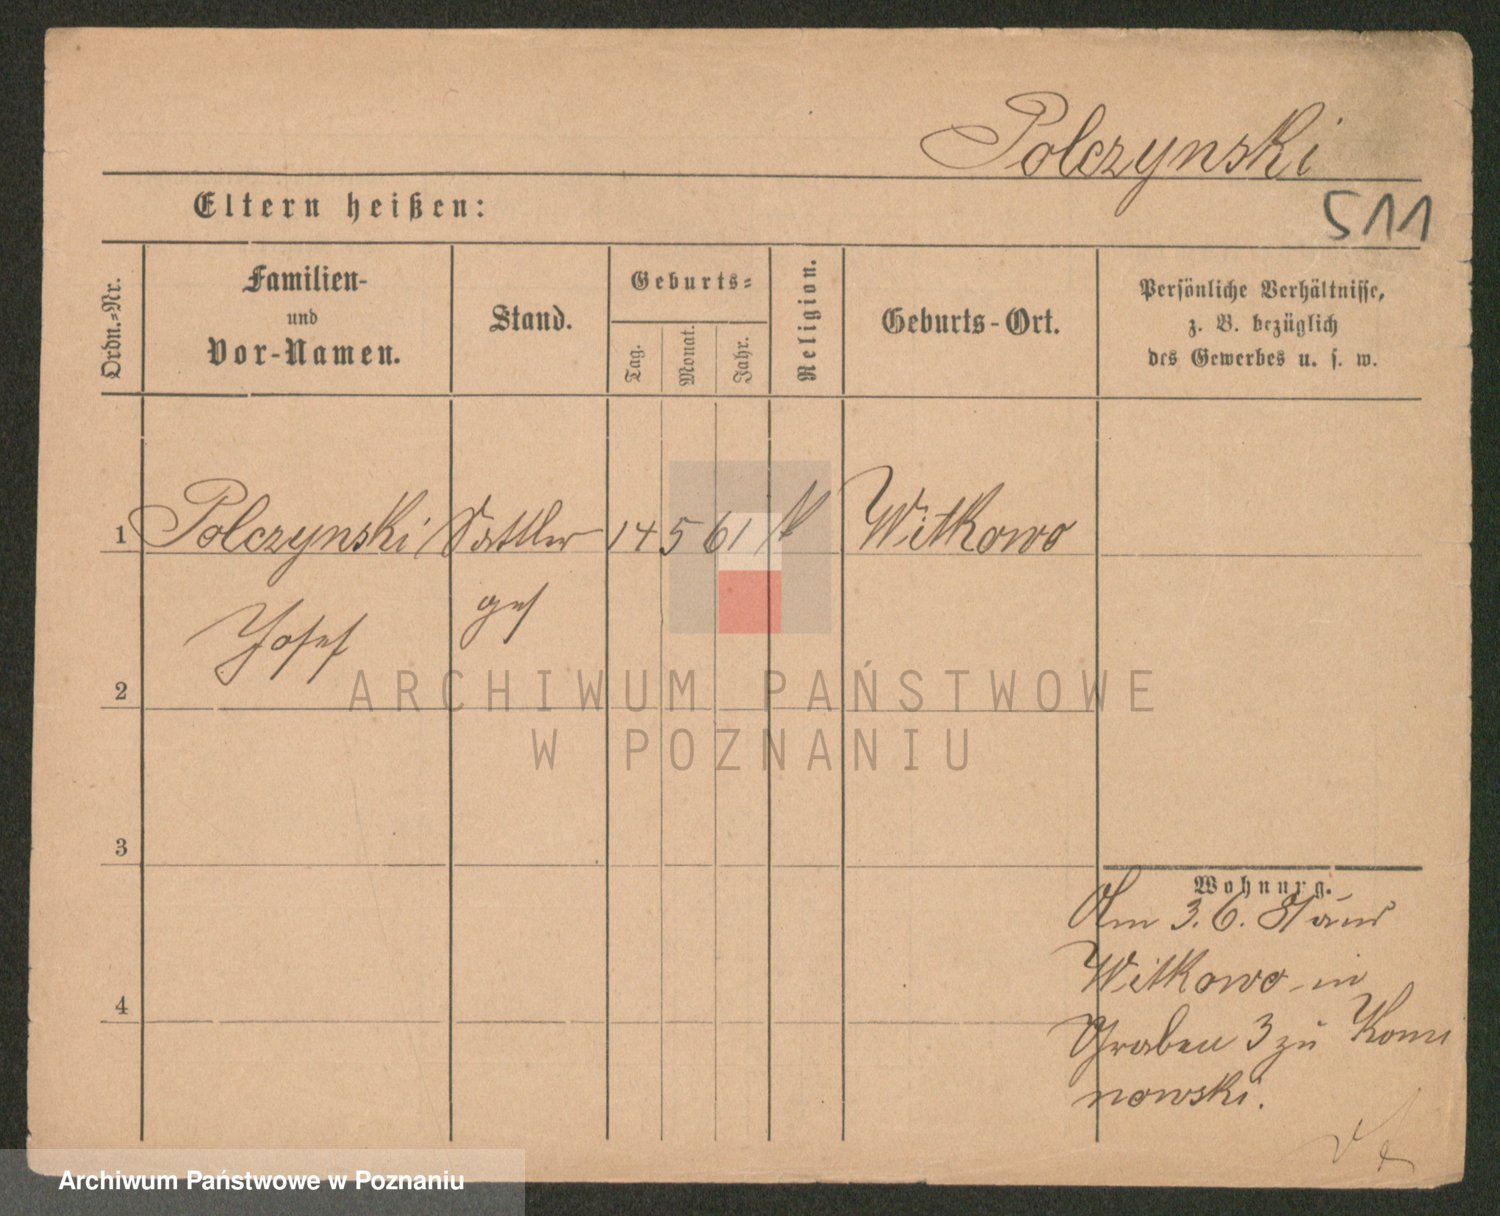 Polczynski
511
Eltern heißen:
Ordn.=Nr.
Familien-
und
Vor-Namen.
Stand.
Geburts=
Tag.
Monat.
Jahr.
Religion.
Geburts-Ort.
Persönliche Verhältnisse,
z. B. bezüglich
des Gewerbes u. s. w.
1 Polczynski Sattler 14 5 61 k Witkowo
Josef ges
2
ARCHIWUM PAŃSTWOWE
W POZNANIU
3
Wohnung.
Am 3. 6. 81 aus
Witkowo in
4
Graben 3 zu
nowski.
Archiwum Państwowe w Poznaniu